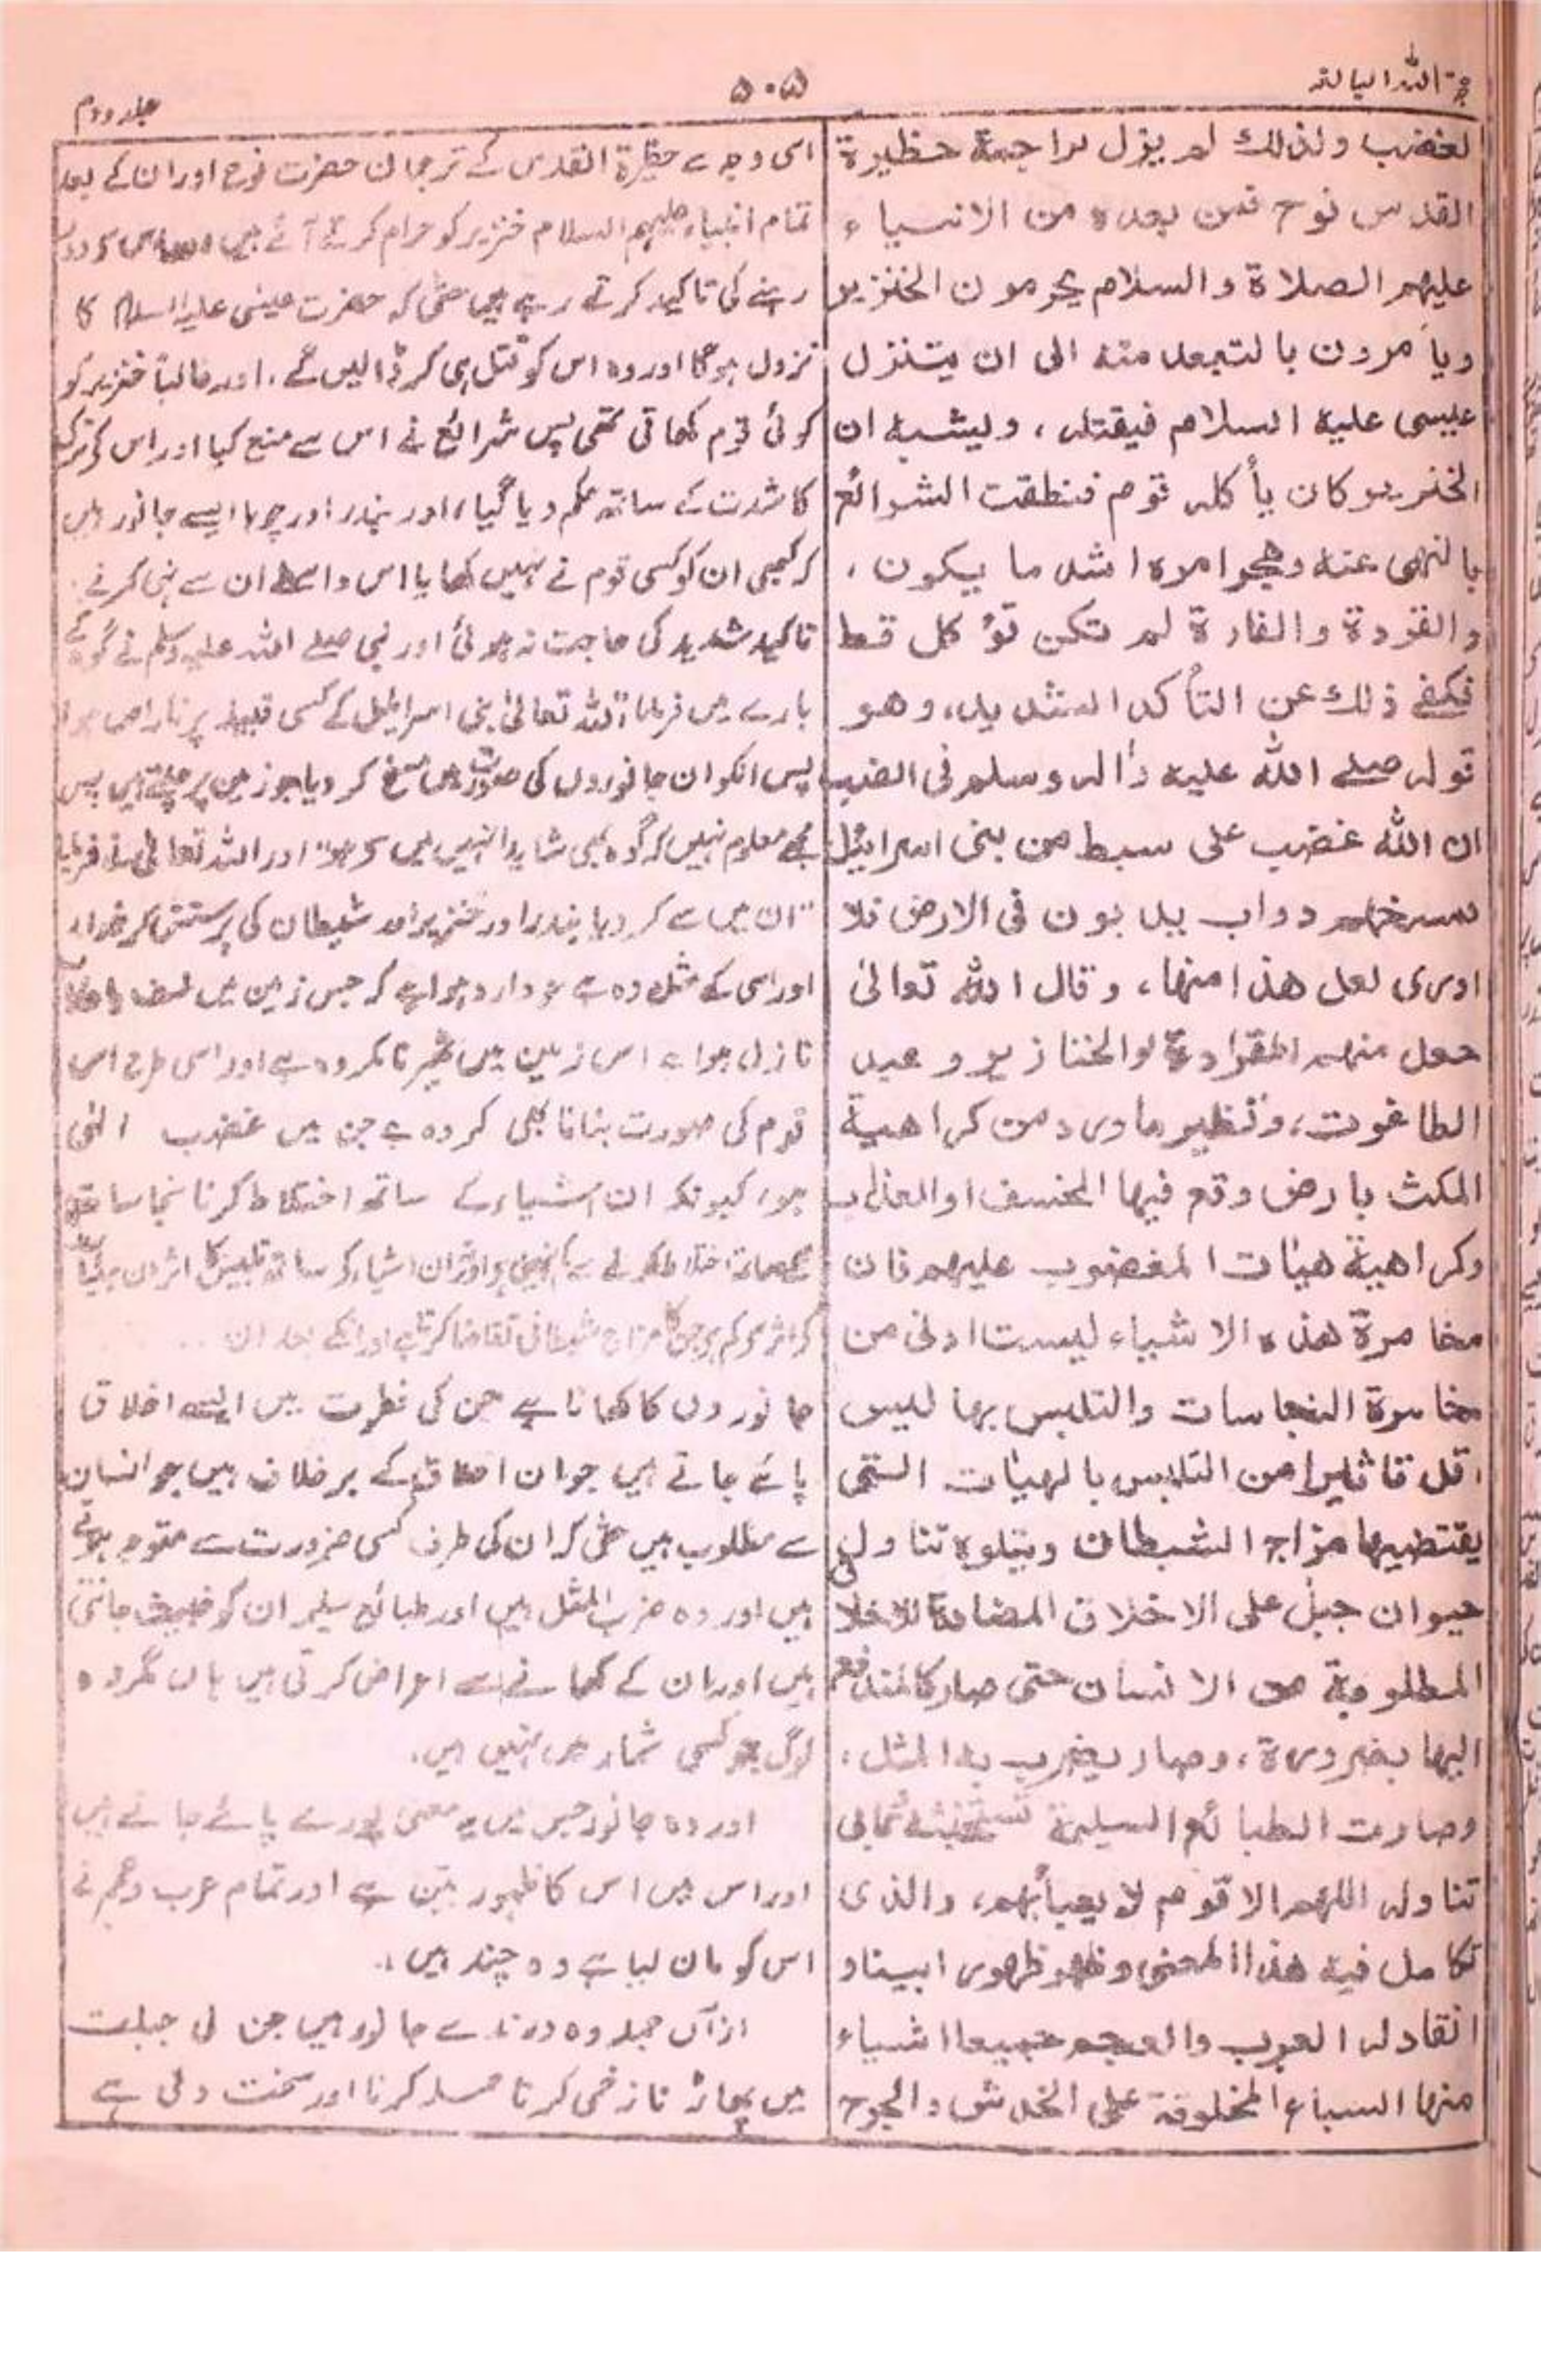 حجۃ اللہ البالغہ
۵۰۵
جلد دوم
لغضب ولذلك لم يزل تراجمة حظيرة
القدس نوح فمن بعده من الانبياء
عليهم الصلاة والسلام يحرمون الخنزير
ويأمرون بالتبعد منه الى ان يتنزل
عيسى عليه السلام فيقتله، ويشبه ان
الخنزير كان يأكله قوم فنطقت الشرائع
بالنهى عنه وهجر امره اشد ما يكون،
والقردة والفارة لم تكن تؤكل قط
فكفى ذلك عن التأكد الشديد، وهو
قوله صلے الله عليه وآله وسلم فى الضب
ان الله غضب على سبط من بنى اسرائيل
فمسخهم دواب يدبون فى الارض فلا
ادرى لعل هذا منها، وقال الله تعالىٰ
جعل منهم القردة والخنازير وعبد
الطاغوت، ونظير ما ورد من كراهية
المكث بارض وقع فيها الخسف او العذاب
وكراهية هيأت المغضوب عليهم فان
مخامرة هذه الاشياء ليست ادنى من
مخامرة النجاسات والتلبس بها ليس
اقل تاثيرا من التلبس بالهيأت التى
يقتضيها مزاج الشيطان ويتلوه تناول
حيوان جبل على الاخلاق المضادة للاخلا
المطلوبة من الانسان حتى صار كالمندفع
اليها بضرورة، وصار يضرب به المثل،
وصارت الطبائع السليمة تستخبثه وتابى
تناوله اللهم الا قوم لا يعبأ بهم، والذى
تكامل فيه هذا المعنى وظهر ظهورا بينا و
انقاد له العرب والعجم جميعا اشياء
منها السباع المخلوقة على الخدش والجرح
اسی وجہ سے حظیرۃ القدس کے ترجمان حضرت نوح اور ان کے بعد
تمام انبیاء علیہم السلام خنزیر کو حرام کرتے آئے ہیں اور اس سے دور
رہنے کی تاکید کرتے رہے ہیں حتٰی کہ حضرت عیسٰی علیہ السلام کا
نزول ہوگا اور وہ اس کو قتل ہی کر ڈالیں گے، اور غالباً خنزیر کو
کوئی قوم کھاتی تھی پس شرائع نے اس سے منع کیا اور اس کو ترک
کا شدت کے ساتھ حکم دیا گیا، اور بندر اور چوہا ایسے جانور ہیں
کہ کبھی ان کو کسی قوم نے نہیں کھایا اس واسطے ان سے نہی کرنے
تاکید شدید کی حاجت نہ ہوئی اور نبی صلے اللہ علیہ وسلم نے گوہ کے
بارے میں فرمایا اللہ تعالیٰ بنی اسرائیل کے کسی قبیلہ پر ناراض ہوا
پس انکو ان جانوروں کی صورت میں مسخ کر دیا جو زمین پر چلتے ہیں پس
مجھے معلوم نہیں کہ گوہ بھی شاید انہیں میں سے ہو" اور اللہ تعالٰی نے فرمایا
"ان میں سے کر دیا بندر اور خنزیر اور شیطان کی پرستش کرنیوالے
اور اسی کے مثل وہ ہے جو وارد ہوا ہے کہ جس زمین میں خسف یا عذاب
نازل ہوا ہے اس زمین میں ٹھہرنا مکروہ ہے اور اسی طرح اس
قوم کی صورت بنانا بھی مکروہ ہے جن میں غضب الٰہی
ہو، کیونکہ ان اشیاء کے ساتھ اختلاط کرنا نجاسات
کے ساتھ اختلاط کرنے سے کم نہیں ہے اور ان اشیاء کے ساتھ تلبس کا اثر ان
کے اثر سے کم جن کا مزاج شیطانی تقاضا کرتا ہے اور اسکے بعد ان
جانوروں کا کھانا ہے جن کی فطرت میں ایسے اخلاق
پائے جاتے ہیں جو ان اخلاق کے برخلاف ہیں جو انسان
سے مطلوب ہیں حتٰی کہ ان کی طرف کسی ضرورت سے متوجہ ہوتے
ہیں اور وہ ضرب المثل ہیں اور طبائع سلیمہ ان کو خبیث جانتی
ہیں اور ان کے کھانے سے اعراض کرتی ہیں ہاں مگر وہ
لوگ جو کسی شمار میں نہیں ہیں۔
اور وہ جانور جس میں یہ معنی پورے پائے جاتے ہیں
اور اس میں اس کا ظہور بین ہے اور تمام عرب وعجم نے
اس کو مان لیا ہے وہ چند ہیں۔
ازآں جملہ وہ درندے جانور ہیں جن کی جبلت
میں پھاڑنا زخمی کرنا حملہ کرنا اور سخت دلی ہے